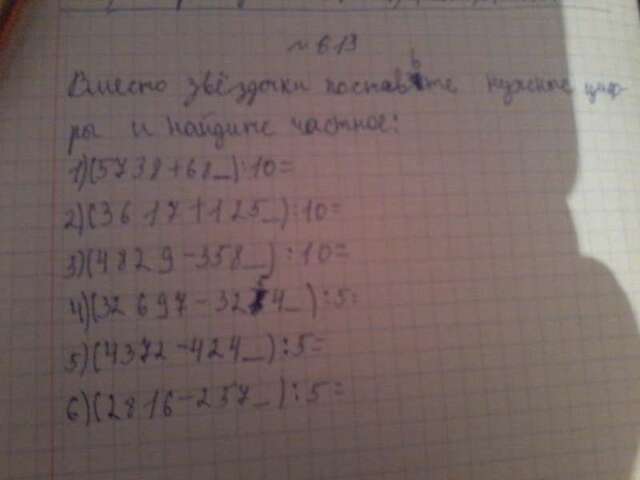 № 613
Вместо звёздочки поставьте нужные циф-
ры и найдите частное:
1)(5738+68_):10=
2)(3617+125_):10=
3)(4829-358_):10=
4)(32697-3254_):5=
5)(4372-424_):5=
6)(2816-257_):5=